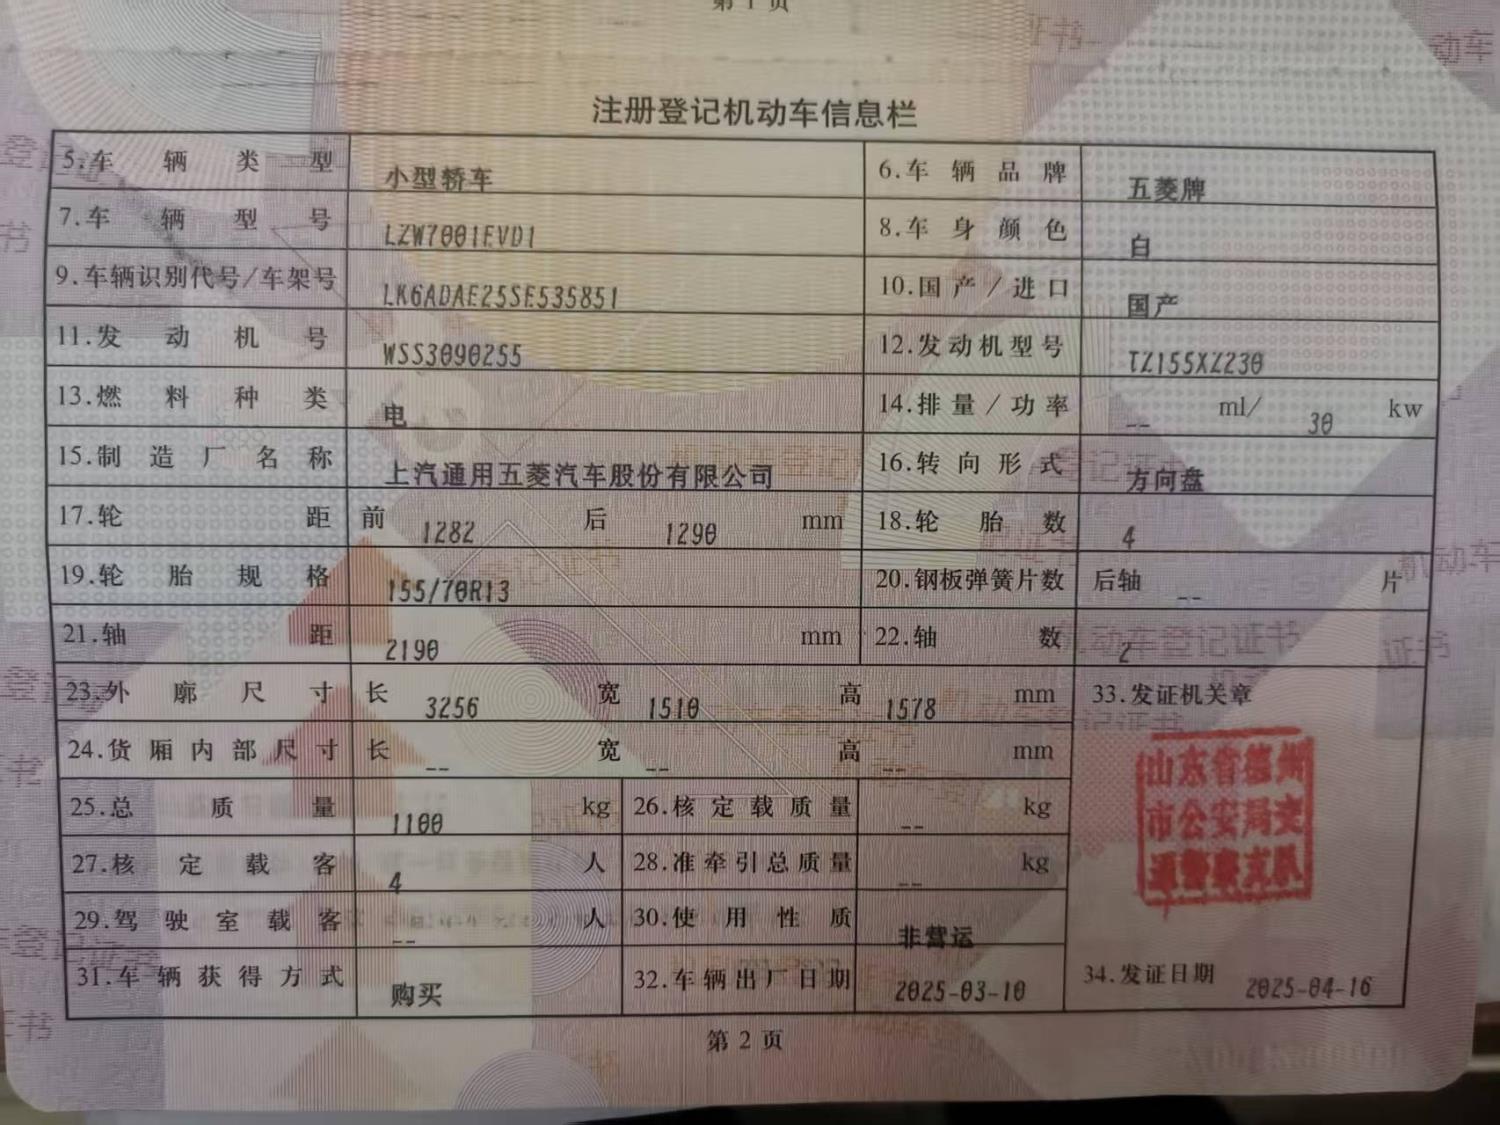 第1页
注册登记机动车信息栏
5.车辆类型 小型轿车 6.车辆品牌 五菱牌
7.车辆型号 LZW7001EVD1 8.车身颜色 白
9.车辆识别代号/车架号 LK6ADAE25SE535851 10.国产/进口 国产
11.发动机号 WSS3090255 12.发动机型号 TZ155XZ230
13.燃料种类 电 14.排量/功率 -- ml/ 30 kw
15.制造厂名称 上汽通用五菱汽车股份有限公司 16.转向形式 方向盘
17.轮距 前 1282 后 1290 mm 18.轮胎数 4
19.轮胎规格 155/70R13 20.钢板弹簧片数 后轴 -- 片
21.轴距 2190 mm 22.轴数 2
23.外廓尺寸 长 3256 宽 1510 高 1578 mm 33.发证机关章
24.货厢内部尺寸 长 -- 宽 -- 高 -- mm
山东省德州
市公安局交
通警察支队
25.总质量 1100 kg 26.核定载质量 -- kg
27.核定载客 4 人 28.准牵引总质量 -- kg
29.驾驶室载客 -- 人 30.使用性质 非营运
31.车辆获得方式 购买 32.车辆出厂日期 2025-03-10 34.发证日期 2025-04-16
第2页